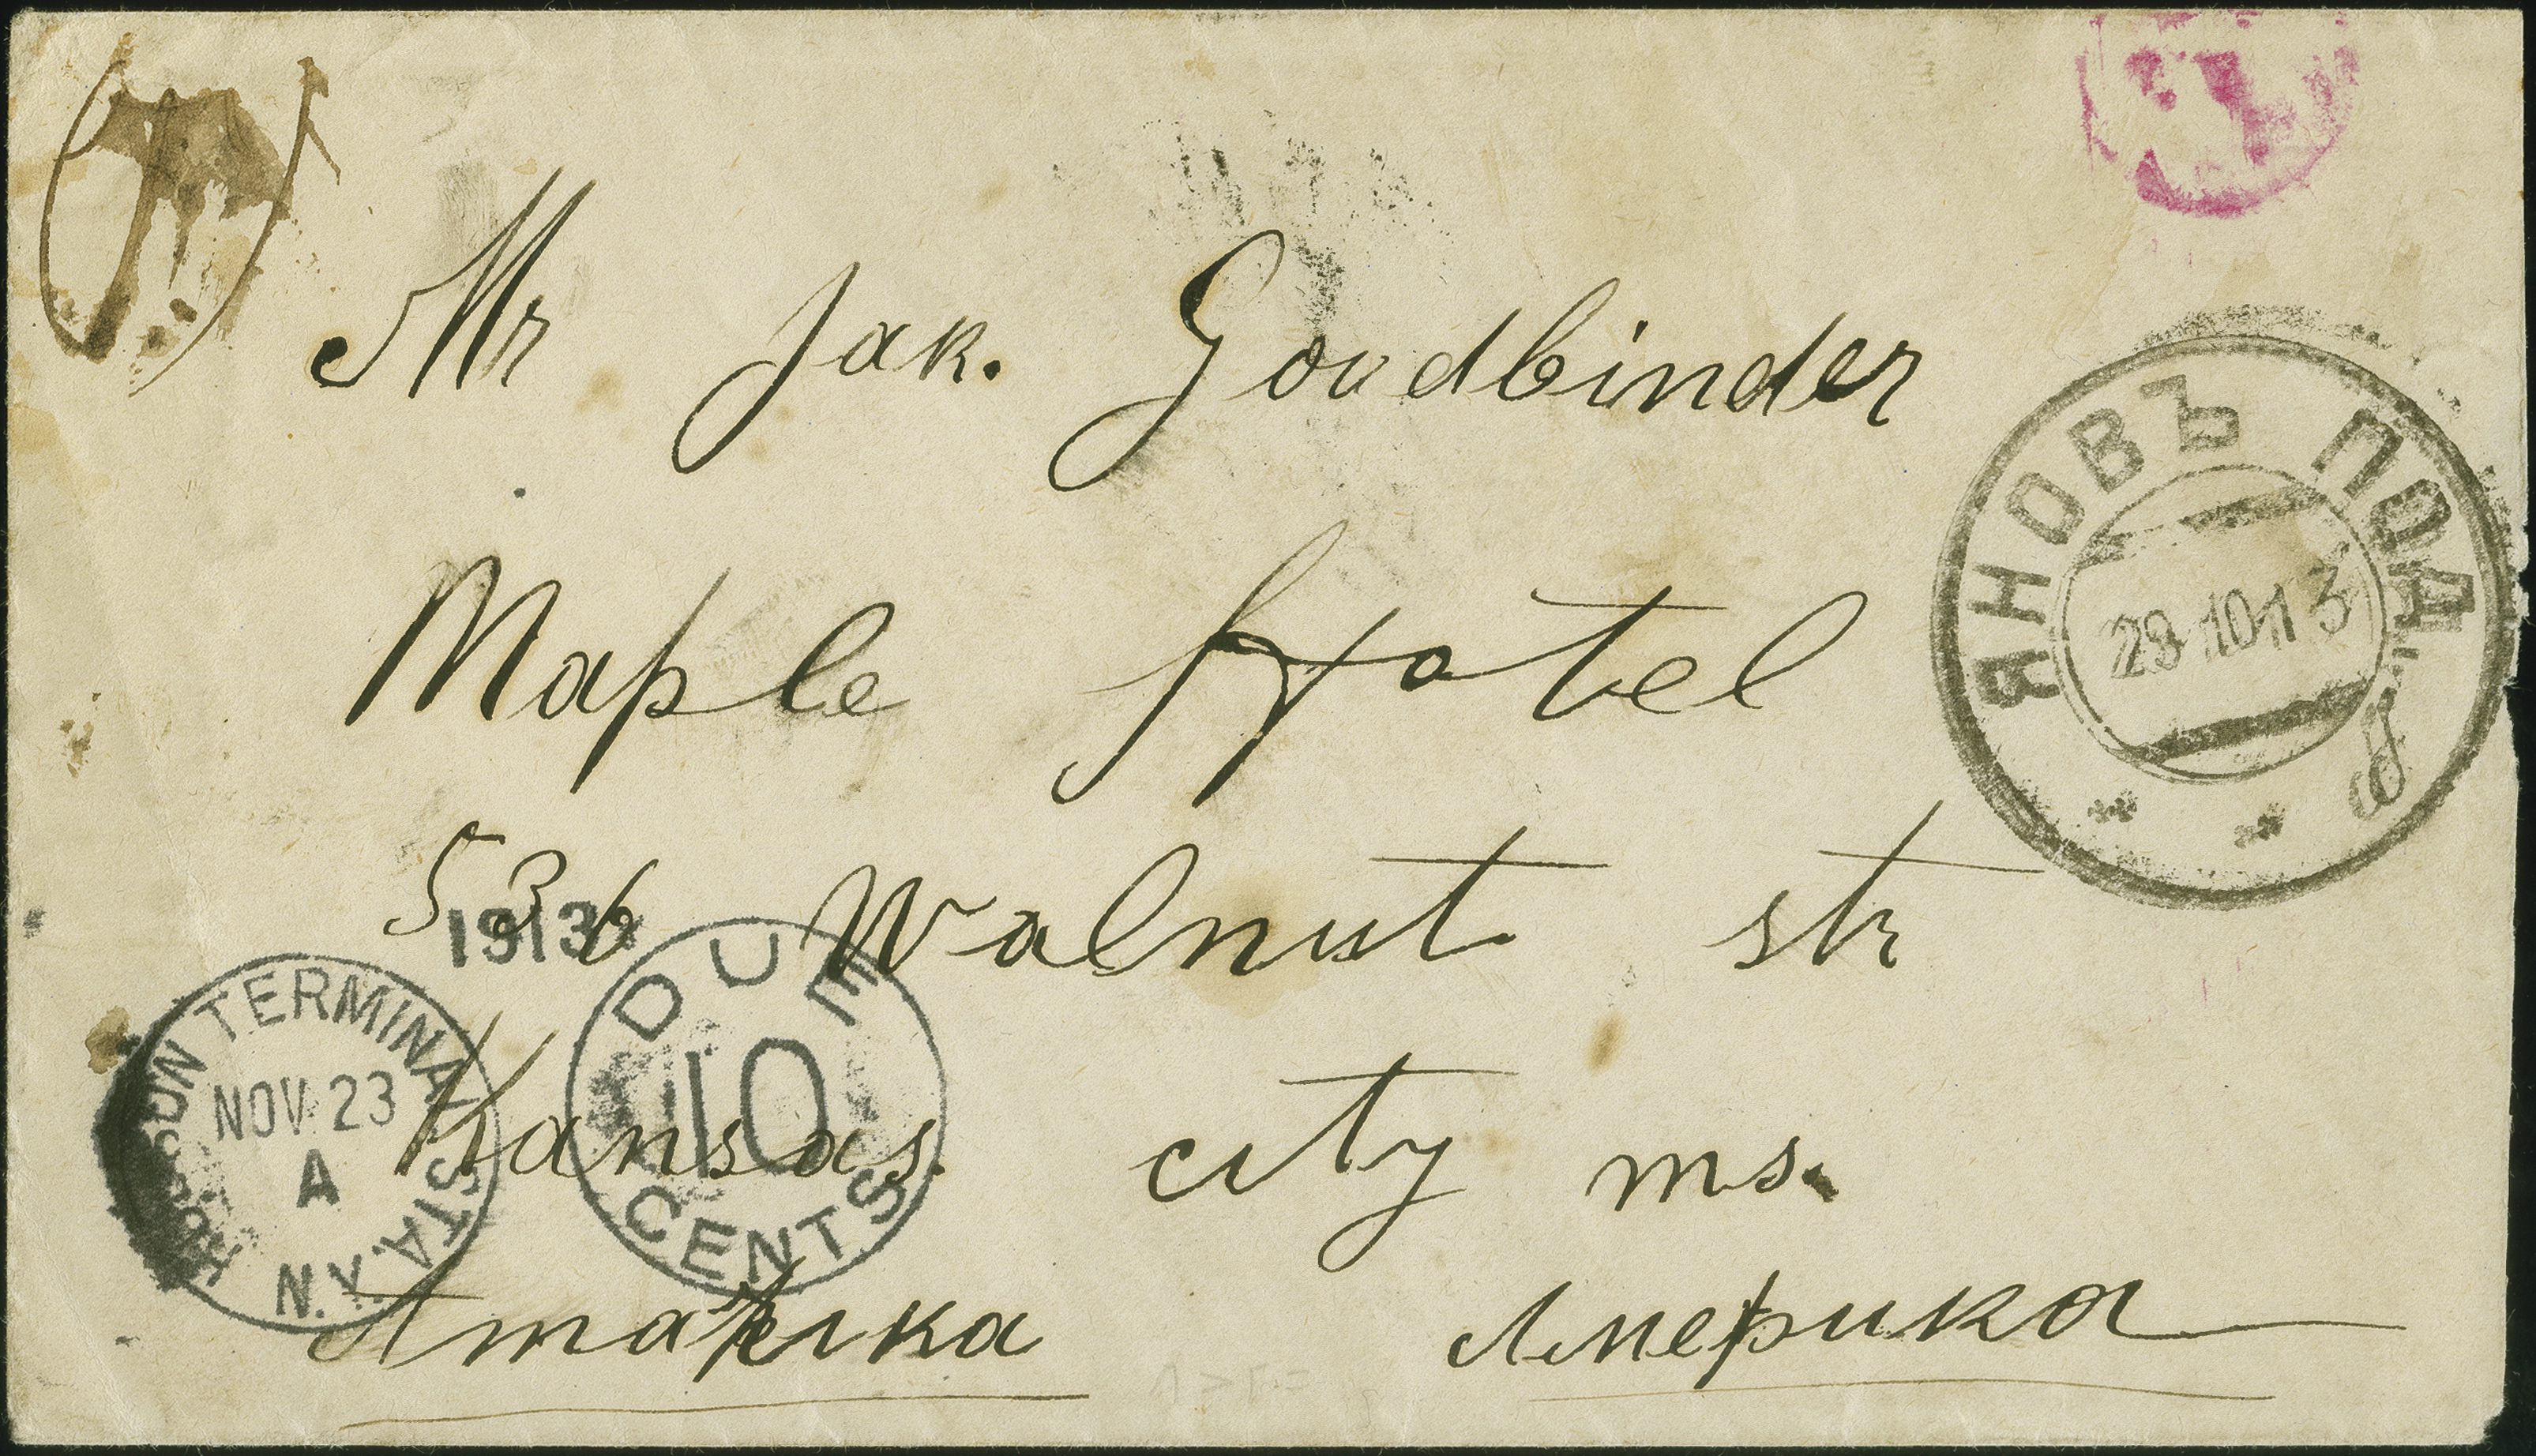 Mr Jak. Goudbinder
Maple Hotel
536 Walnut str
Kansas. city ms.
Amarika Америка
ЯНОВЪ ПОД
29.10.13
1913
HUDSON TERMINAL STA. N.Y.
NOV 23
A
DUE
10
CENTS
T